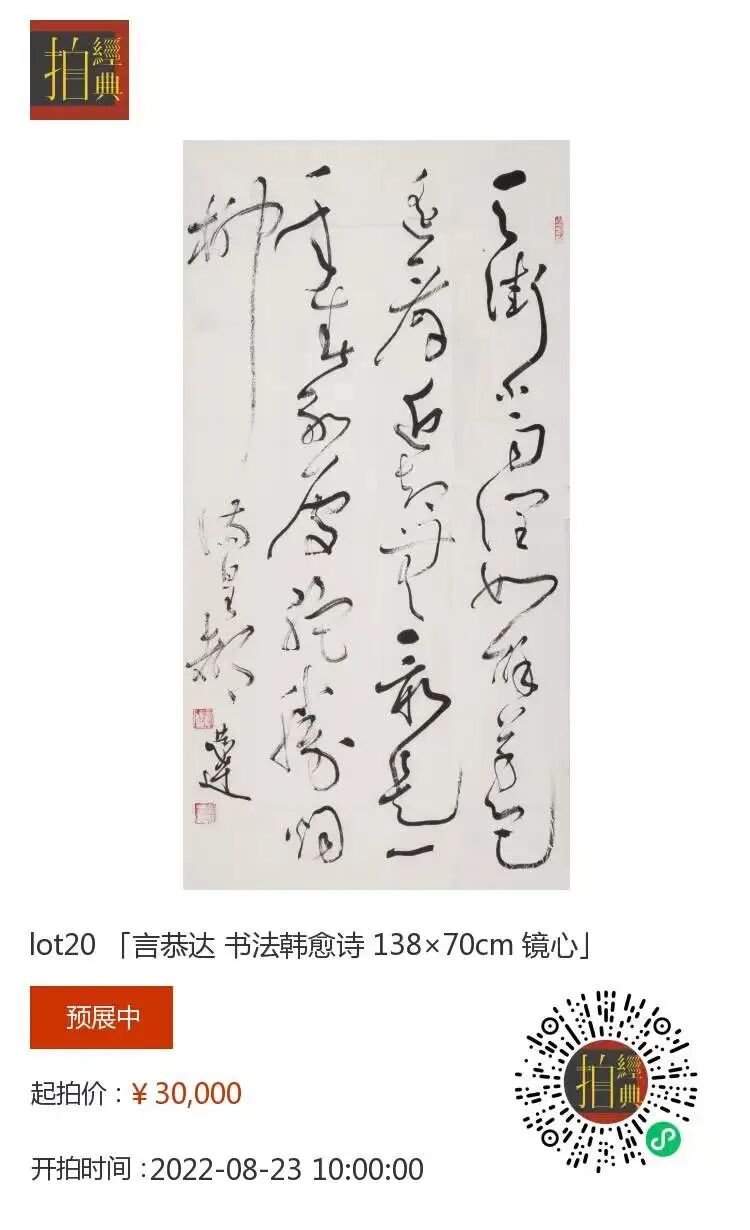 拍
經典
天街小雨潤如酥草色
遥看近却無最是一
年春好處絕勝烟
柳
滿皇都
恭達
lot20 「言恭达 书法韩愈诗 138×70cm 镜心」
预展中
起拍价：¥ 30,000
开拍时间：2022-08-23 10:00:00
拍
經典